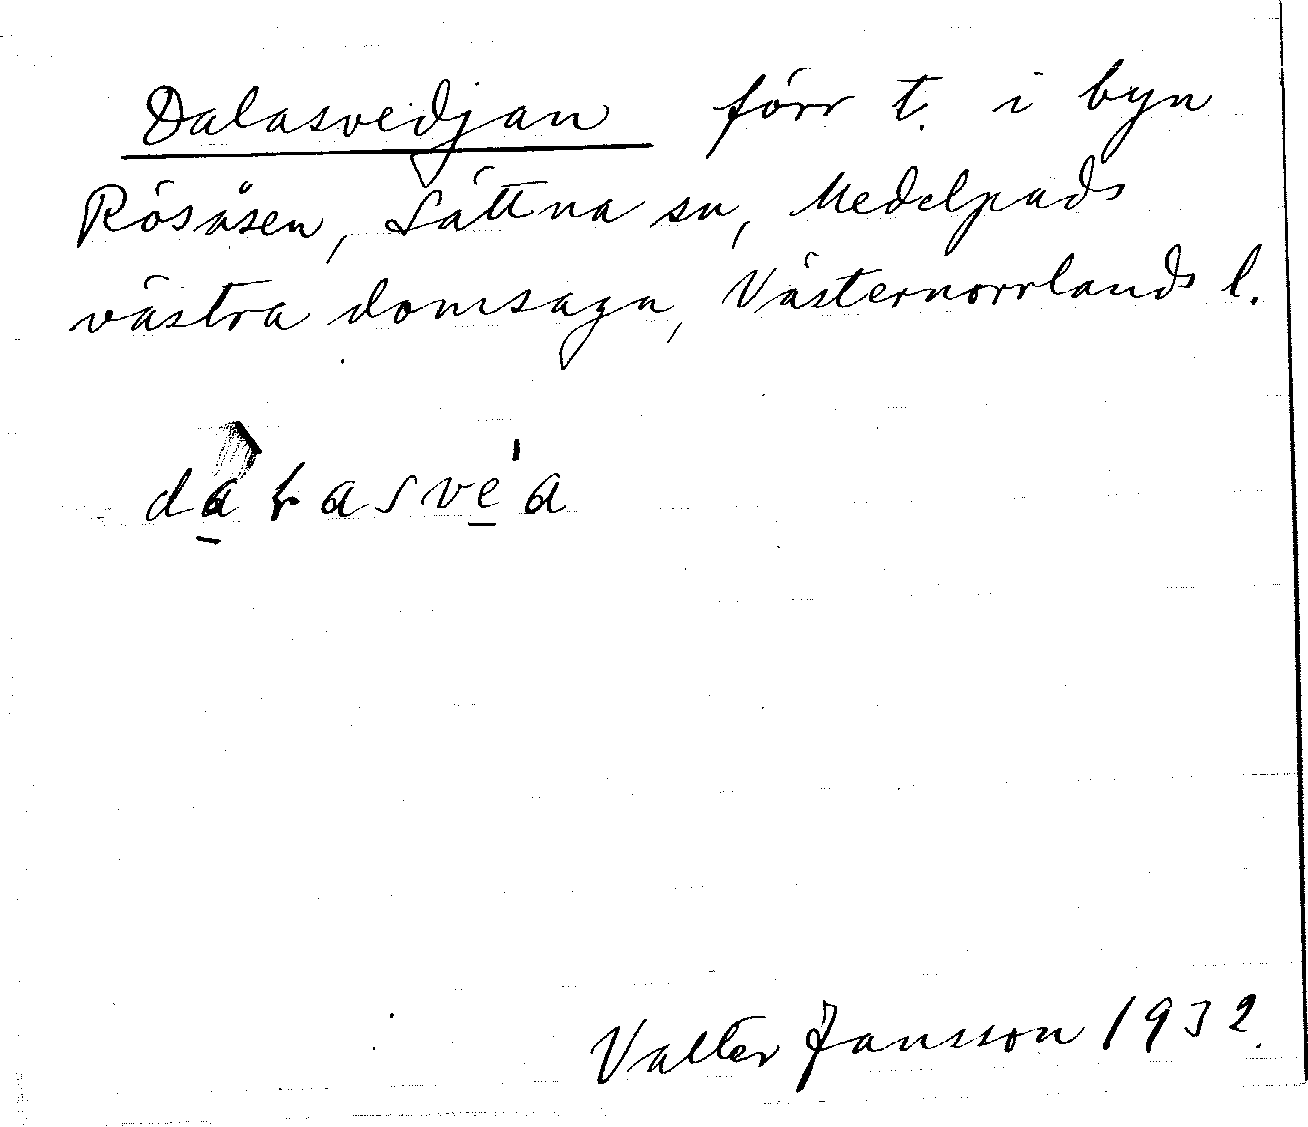 Dalasvedjan förr t. i byn
Rösåsen, Sättna sn, Medelpads
västra domsaga, Västernorrlands l.
Valter Jansson 1932.